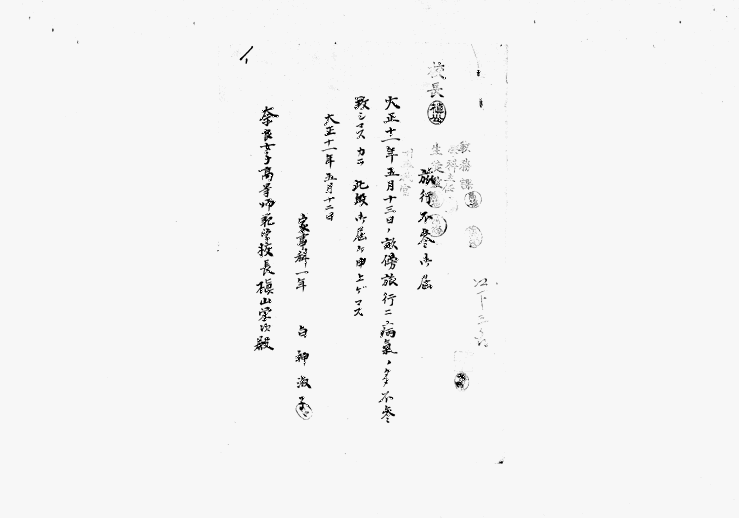 校長
教務課
旅行不參御届
大正十一年五月十三日ノ畝傍旅行ニ病氣ノタメ不參
致シマスカラ此段御届ケ申上ゲマス
大正十一年五月十二日
家事科一年 白神淑子
奈良女子高等師範学校長槇山栄次殿